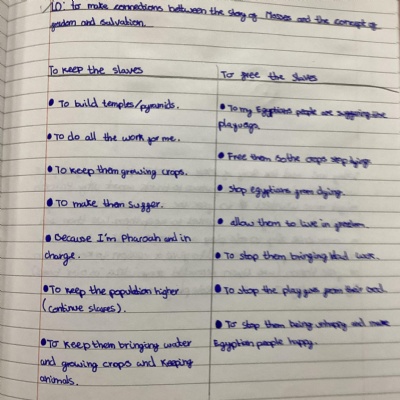 LO: to make connections between the story of Moses and the concept of
freedom and salvation.
To keep the slaves
• To build temples/pyramids.
• To do all the work for me.
• To keep them growing crops.
• To make them suffer.
• Because I'm Pharoah and in
charge.
• To keep the population higher
(continue slaves).
• To keep them bringing water
and growing crops and keeping
animals.
To free the slaves
• To my Egyptians people are suffering the
playuegs.
• Free them so the crops stop dying.
• Stop egyptians from dying.
• allow them to live in freedom.
• To stop them bringing bad luck.
• To stop the playgue from their God.
• To stop them being unhappy and make
Egyptian people happy.